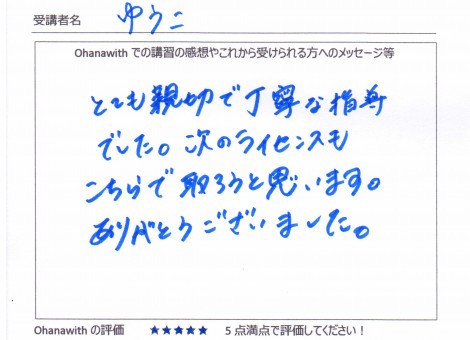 受講者名 ゆうこ
Ohanawith での講習の感想やこれから受けられる方へのメッセージ等
とても親切で丁寧な指導
でした。次のライセンスも
こちらで取ろうと思います。
ありがとうございました。
Ohanawith の評価 ★★★★★ 5点満点で評価してください！